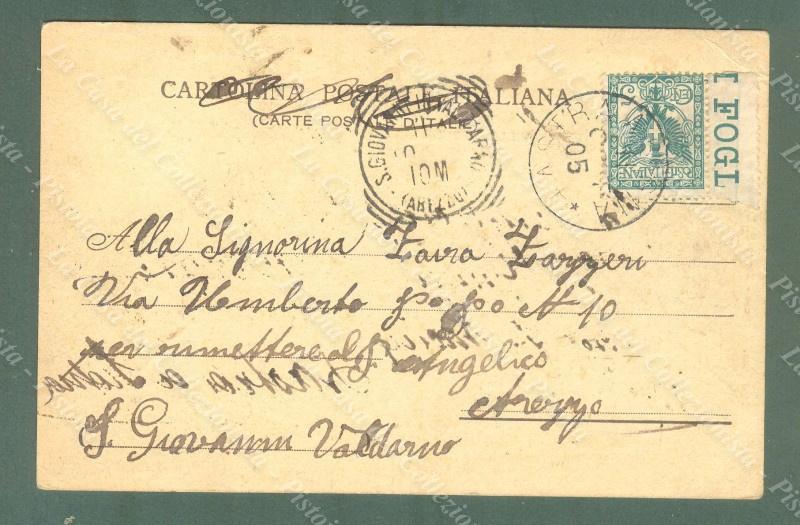 CARTOLINA POSTALE ITALIANA
(CARTE POSTALE D'ITALIE)
S. GIOVANNI VALDARNO
10M
(AREZZO)
05
I FOGL
POSTE ITALIANE
Alla Signorina Zaira Lazzeri
Via Umberto Po Po N 10
per rimettere a S. Angelico
Arezzo
S. Giovanni Valdarno
La Casa del Collezionista - Pistoia